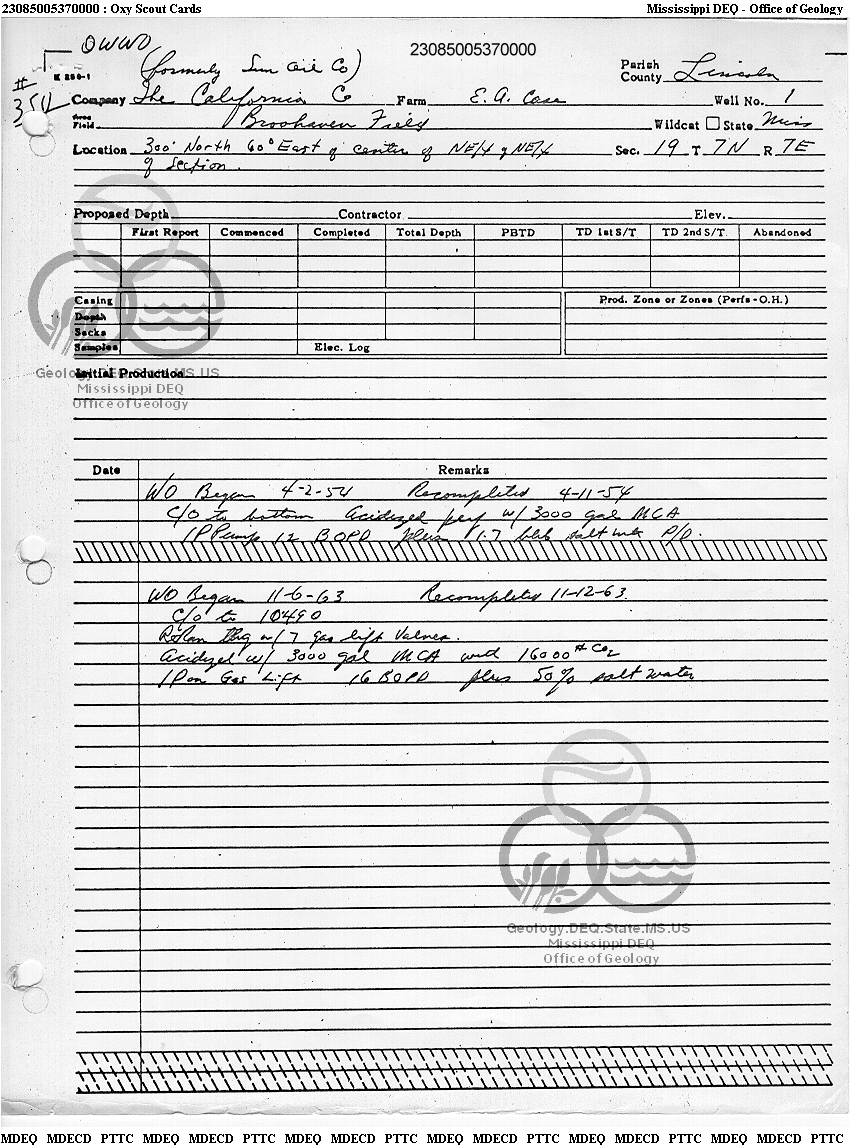 23085005370000 : Oxy Scout Cards Mississippi DEQ - Office of Geology
OWWO
23085005370000
(formerly Sun Oil Co)
K 286-1
Parish
County Lincoln
# 354
Company The California Co Farm E. A. Case Well No. 1
Field Brookhaven Field Wildcat State Miss
Location 300' North 60° East of center of NE/4 of NE/4 Sec. 19 T 7N R 7E
of Section.
Proposed Depth Contractor Elev.
First Report Commenced Completed Total Depth PBTD TD 1st S/T TD 2nd S/T. Abandoned
Casing Prod. Zone or Zones (Perfs - O.H.)
Depth
Sacks
Samples Elec. Log
Geology.DEQ.State.MS.US
Initial Production
Mississippi DEQ
Office of Geology
Date Remarks
WO Began 4-2-54 Recompleted 4-11-54
C/O to bottom Acidized perf w/ 3000 gal MCA
IP Pump 12 BOPD plus 1.7 bbls salt wtr P/D.
WO Began 11-6-63 Recompleted 11-12-63.
C/O to 10490
ReRan tbg w/ 7 gas lift Valves.
Acidized w/ 3000 gal MCA with 16000# CO2
IP on Gas Lift 16 BOPD plus 50% salt water
Geology.DEQ.State.MS.US
Mississippi DEQ
Office of Geology
MDEQ MDECD PTTC MDEQ MDECD PTTC MDEQ MDECD PTTC MDEQ MDECD PTTC MDEQ MDECD PTTC MDEQ MDECD PTTC